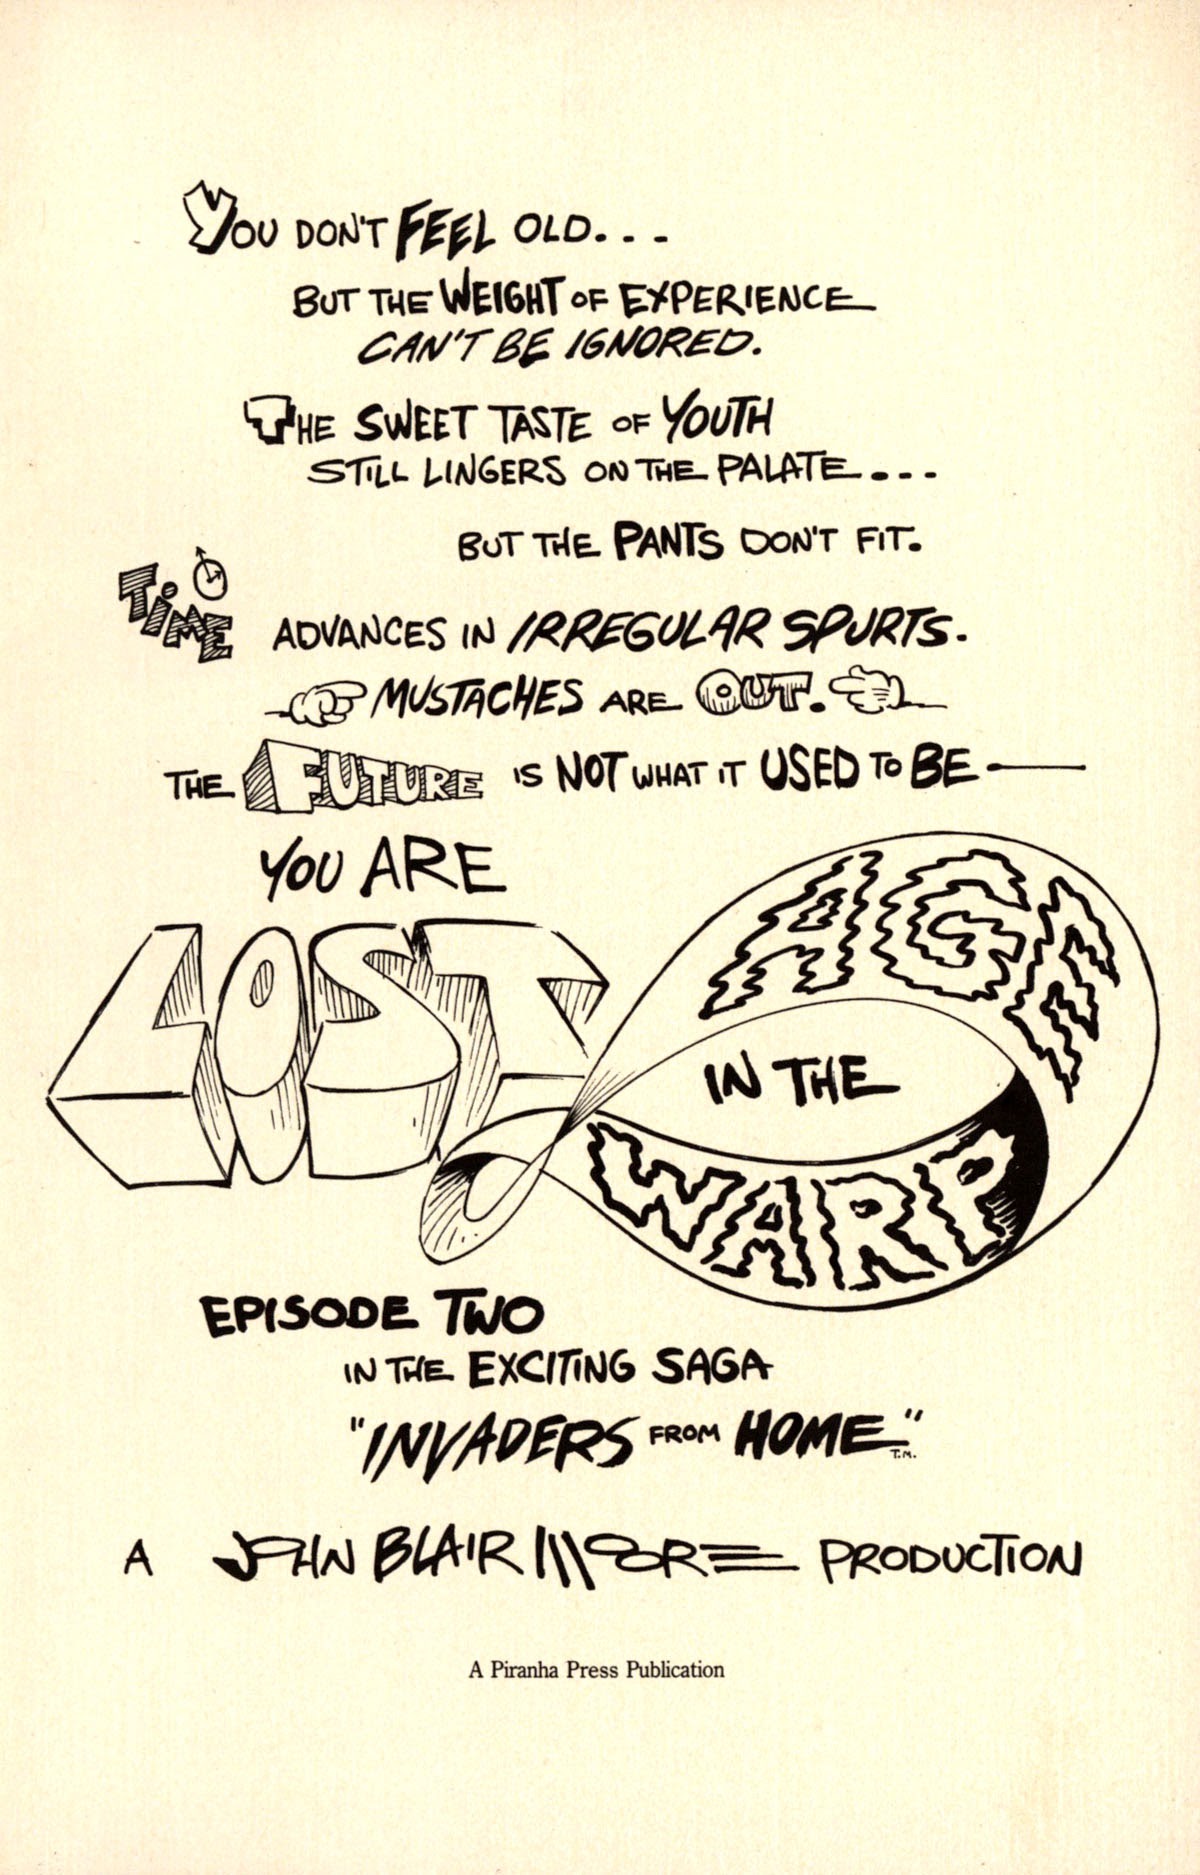 YOU DON'T FEEL OLD...
BUT THE WEIGHT OF EXPERIENCE
CAN'T BE IGNORED.
THE SWEET TASTE OF YOUTH
STILL LINGERS ON THE PALATE...
BUT THE PANTS DON'T FIT.
TIME ADVANCES IN IRREGULAR SPURTS.
MUSTACHES ARE OUT.
THE FUTURE IS NOT WHAT IT USED TO BE—
YOU ARE
LOST
IN THE
AGE
WARP
EPISODE TWO
IN THE EXCITING SAGA
"INVADERS FROM HOME" T.M.
A JOHN BLAIR MOORE PRODUCTION
A Piranha Press Publication